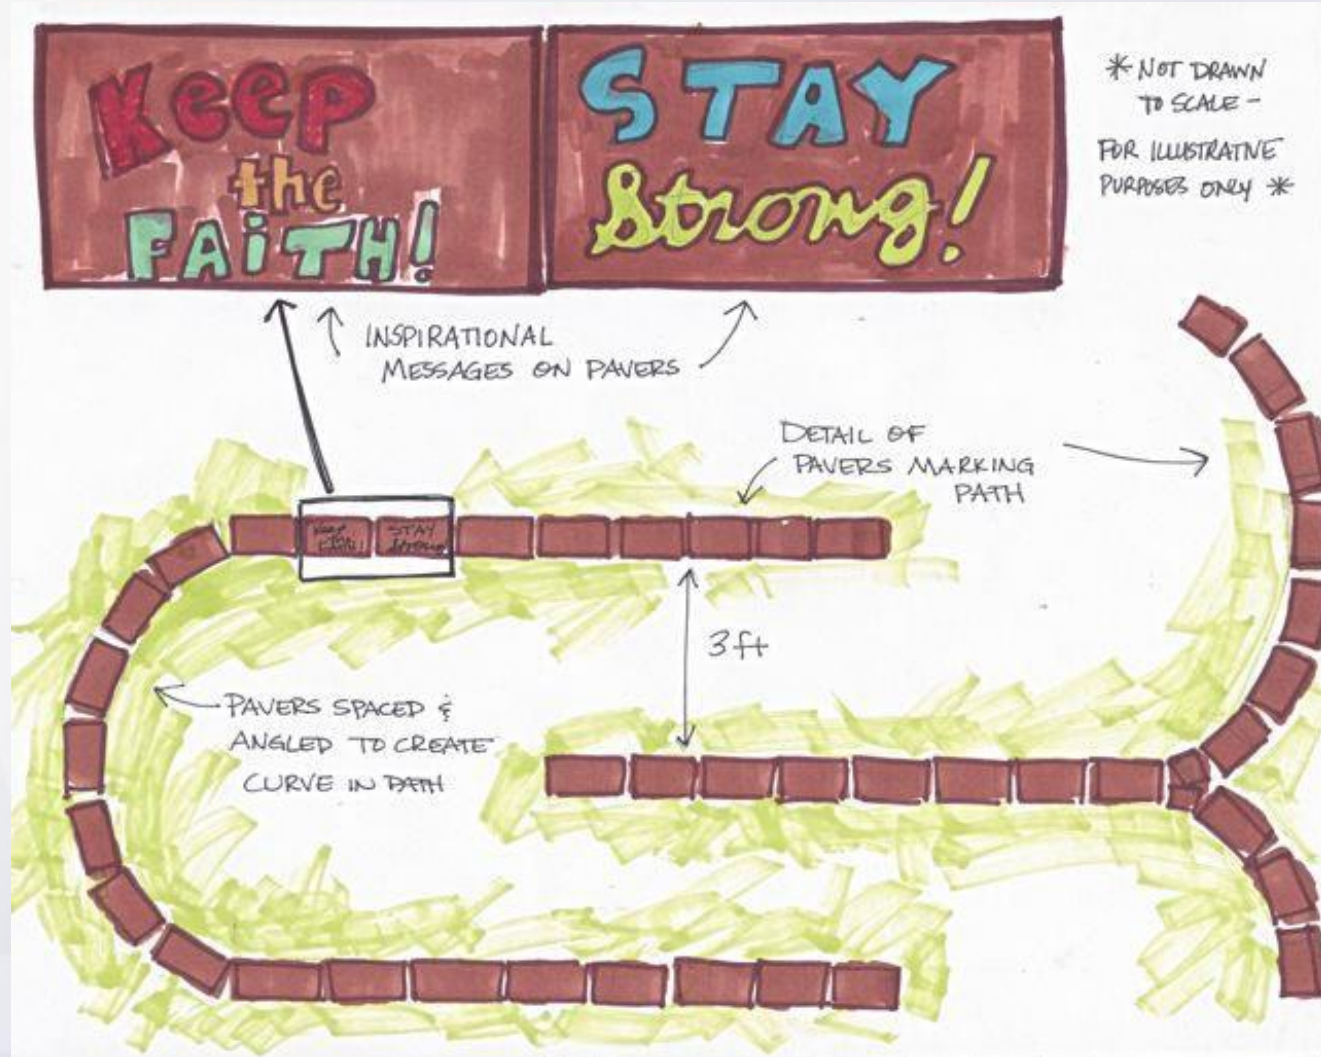 Keep
the
FAiTH!
STAY
Strong!
* NOT DRAWN
TO SCALE -
FOR ILLUSTRATIVE
PURPOSES ONLY *
INSPIRATIONAL
MESSAGES ON PAVERS
DETAIL OF
PAVERS MARKING
PATH
Keep
the
FAiTH!
STAY
Strong!
3 ft
PAVERS SPACED &
ANGLED TO CREATE
CURVE IN PATH